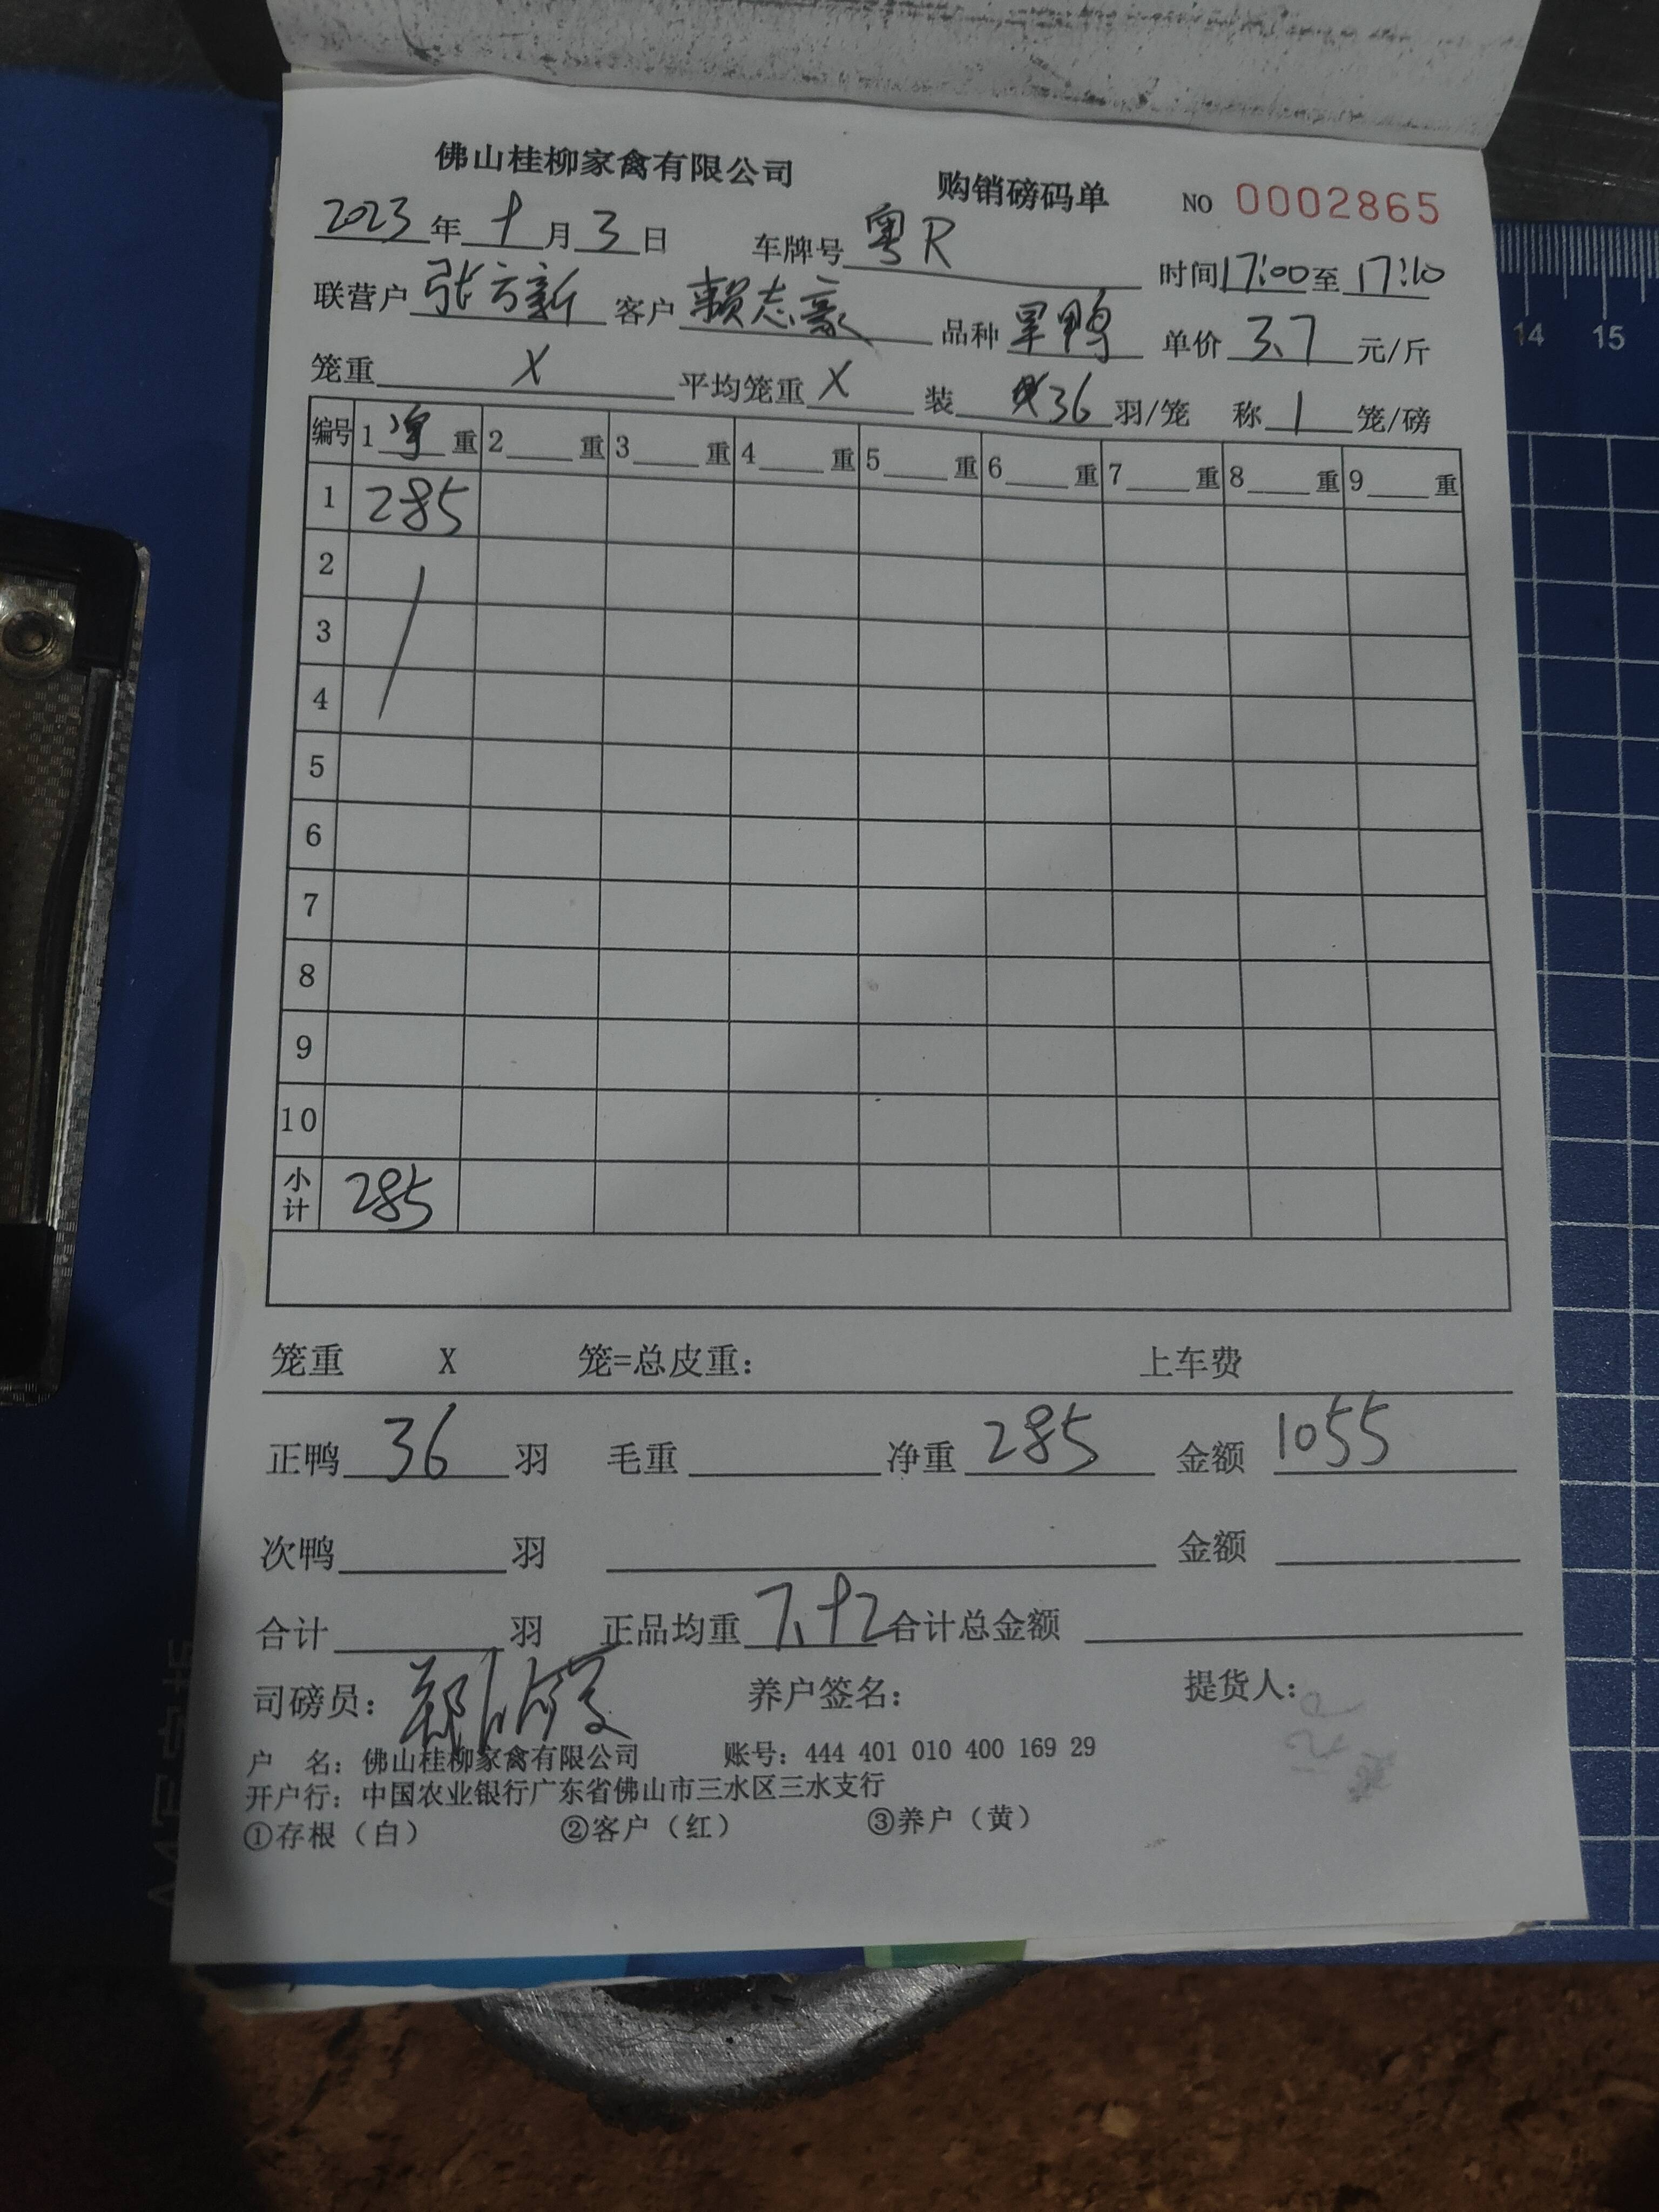 佛山桂柳家禽有限公司 购销磅码单 NO 0002865
2023年9月3日 车牌号粤R 时间17:00至17:10
联营户张方新 客户赖志豪 品种旱鸭 单价3.7元/斤
笼重X 平均笼重X 装36羽/笼 称1笼/磅
编号 1净重 2重 3重 4重 5重 6重 7重 8重 9重
1 285
2
3
4
5
6
7
8
9
10
小计 285
笼重 X 笼=总皮重: 上车费
正鸭36羽 毛重 净重285 金额1055
次鸭 羽 金额
合计 羽 正品均重7.92 合计总金额
司磅员: 养户签名: 提货人:
户 名: 佛山桂柳家禽有限公司 账号: 444 401 010 400 169 29
开户行: 中国农业银行广东省佛山市三水区三水支行
①存根（白） ②客户（红） ③养户（黄）
14 15